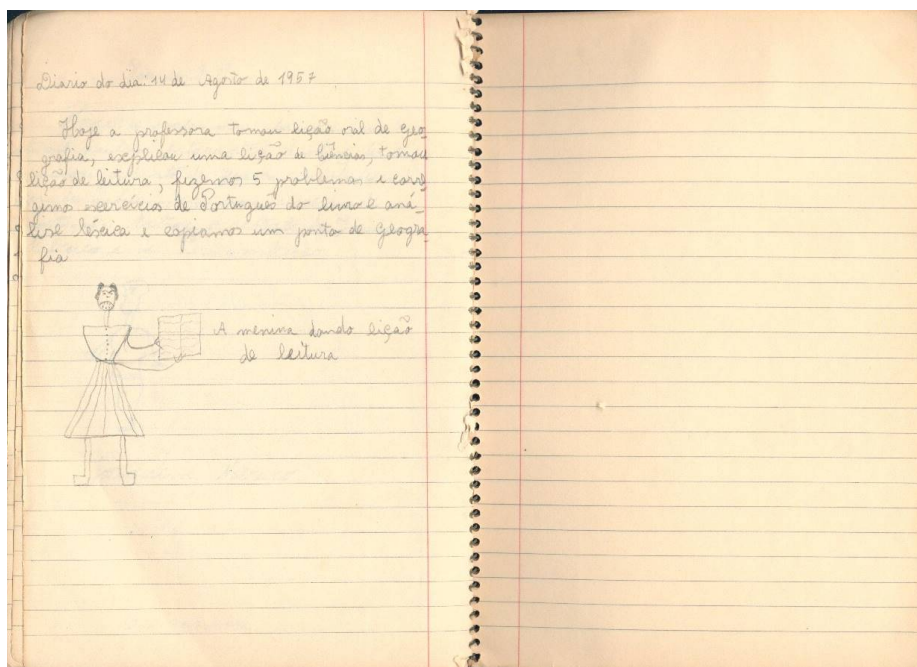 Diario do dia: 14 de Agosto de 1957
Hoje a professora tomou lição oral de geo-
grafia, explicou uma lição de ciências, tomou
lição de leitura, fizemos 5 problemas e corri
gimos exercícios de Português do livro e aná-
lise léxica e copiamos um ponto de geogra
fia
A menina dando lição
de leitura